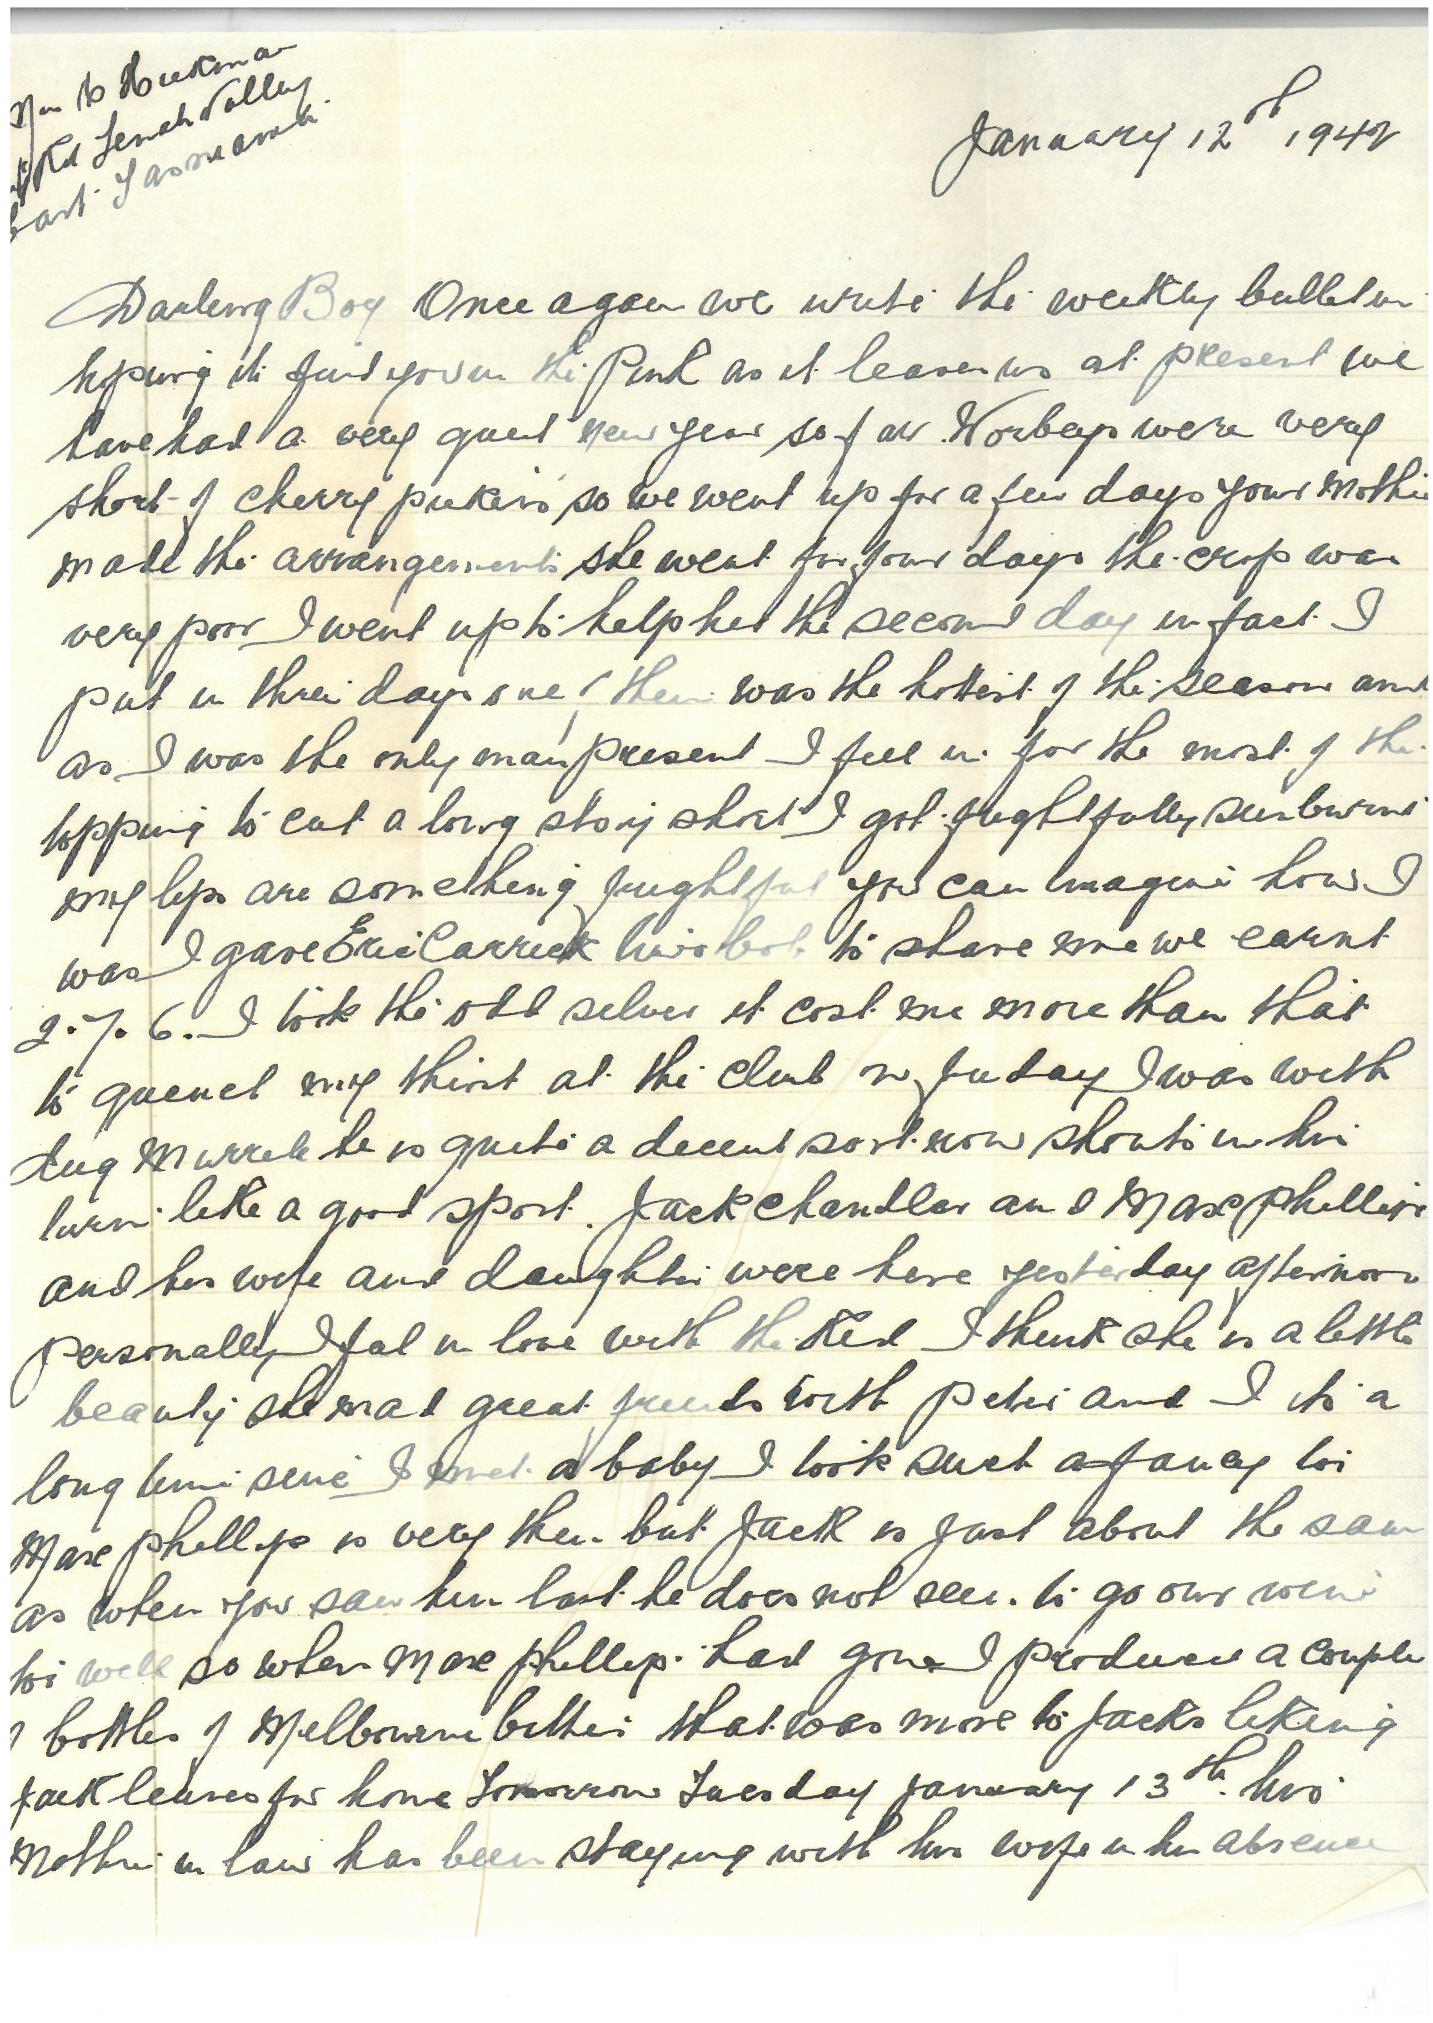 Hickman
Rd Lenah Valley
Tasmania
January 12th 1942
Darling Boy Once again we write the weekly bulletin
hoping it finds you in the Pink as it leaves us at present we
have had a very quiet new year so far. Norbeys were very
short of cherry pickers so we went up for a few days your Mother
made the arrangements she went for four days the crop was
very poor I went up to help her the second day in fact I
put in three days one of them was the hottest of the season and
as I was the only man present I fell in for the most of the
topping to cut a long story short I got frightfully sunburnt
my lips are something frightful you can imagine how I
was I gave Eric Carrick two bob to shave me we earnt
2.7.6. I took the odd silver it cost me more than that
to quench my thirst at the club on Friday I was with
Murrell he is quite a decent sort now shouts in his
turn like a good sport. Jack Chandler and Max Phillips
and his wife and daughter were here yesterday afternoon
personally I fal in love with the Kid I think she is a little
beauty she mad great friends with Peter and I its a
long time since I met a baby I took such a fancy to
Max Phillips is very thin but Jack is just about the same
as when you saw him last he does not seem to go our wine
to well so when Max Phillips had gone I produced a couple
bottles of Melbourne bitter that was more to Jacks liking
Jack leaves for home Tomorrow Tuesday January 13th. his
Mother in law has been staying with his wife in his absence